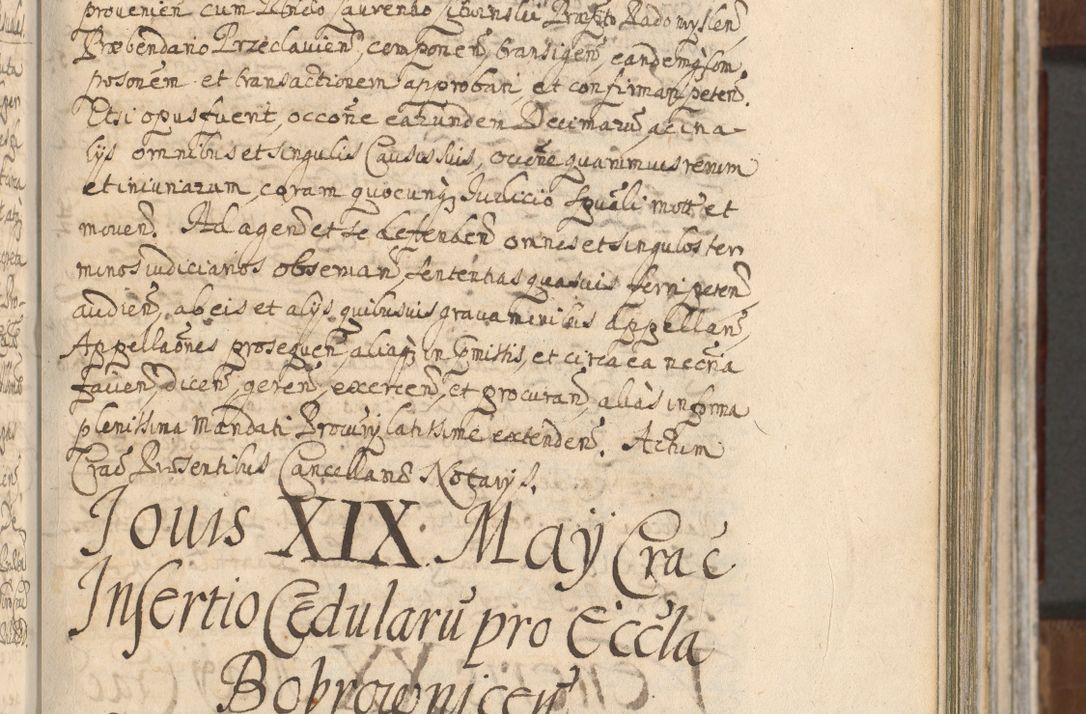 provenien cum Rndo Laurentio Præpto Radomyslen,
Præbendario Przeclavien, componen, transigen, eandemq com
posonem et transactionem approbari, et confirmari peten.
Etsi opus fuerit, occone earunden Decimarū, ac in a
lijs omnibus et singulis Causis suis, ocone quarumvis rerum
et iniuriarum, coram quocunq Iudicio spuāli mott et
moven. Ad agend et se defenden omnes et singulos ter
minos iudiciarios observan, sententias quasvis ferri peten,
audien, ab eis et alijs quibusvis gravaminibus appellan,
Appellaōnes prosequen, aliaq in pmissis, et circa ea necria
facien, dicen, geren, excercen, et procuran, aliàs in forma
plenissima Mandati Procurij latissime extenden. Actum
Crac Præsentibus Cancellariæ Notarijs.
Iovis XIX. Maÿ Crac
Insertio Cedularū pro Eccla
Bobrownicen